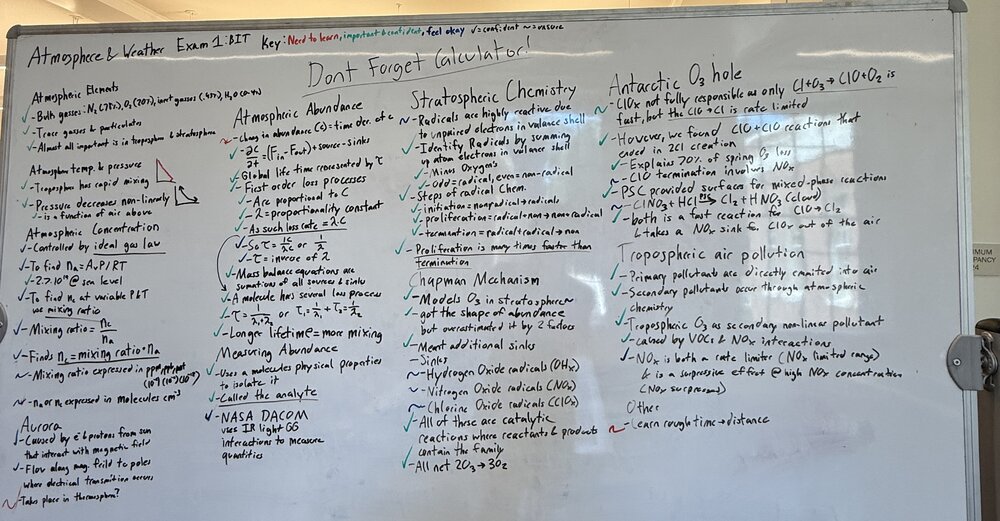 Atmosphere & Weather Exam 1: BIT Key: Need to learn, important & confident, feel okay √=confident ~=unsure
Dont Forget Calculator!
Atmospheric Elements
√ - Bulk gasses: N₂(78%), O₂(20%), inert gasses (.93%), H₂O (0-4%)
√ - Trace gasses & particulates
√ - Almost all important is in troposphere & stratosphere
Atmosphere temp. & pressure
√ - Troposphere has rapid mixing
√ - Pressure decreases non-linearly
√ - is a function of air above
Atmospheric Concentration
√ - Controlled by ideal gas law
√ - To find nₐ = AvP/RT
√ - 2.7·10¹⁹ @ sea level
√ - To find nₐ at variable P&T
we mixing ratio
√ - Mixing ratio = nc/nₐ
√ - Finds nc = mixing ratio · nₐ
~ - Mixing ratio expressed in ppm, ppb, ppt
(10⁻⁶)(10⁻⁹)(10⁻¹²)
~ - nₐ or nc expressed in molecules cm⁻³
Aurora
√ - Caused by e⁻ & protons from sun
that interact with magnetic field
√ - Flow along mag. field to poles
where electrical transmition occurs
~ - Takes place in thermosphere?
Atmospheric Abundance
~ - chang in abundance (c) = time der. of c
√ - ∂C/∂t = (Fin - Fout) + source - sinks
√ - Global life time represented by τ
√ - First order loss processes
√ - Are proportional to C
√ - λ = proportionality constant
√ - As such loss rate = λ·C
√ - So τ = 1C/λC or 1/λ
√ - τ = inverse of λ
√ - Mass balance equations are
sumations of all sources & sinks
√ - A molecule has several loss process
√ - τ = 1/λ₁+λ₂ or τ₁ = 1/λ₁ + τ₂ = 1/λ₂
√ - Longer lifetime = more mixing
Measuring Abundance
√ - Uses a molecules physical properties
to isolate it
√ - Called the analyte
√ - NASA DACOM
uses IR light GG
interactions to measure
quantities
Stratospheric Chemistry
~ - Radicals are highly reactive due
to unpaired electrons in valance shell
√ - Identify Radicals by summing
up atom electrons in valance shell
√ - Minus Oxygen's
√ - Odd = radical, even = non-radical
√ - Steps of radical Chem.
√ - initiation = nonradical → radicals
√ - proliferation = radical + non → non + radical
√ - termination = radical + radical → non
√ - Proliferation is many times faster than
termination
Chapman Mechanism
√ - Models O₃ in stratosphere
√ - got the shape of abundance
but overestimated it by 2 factors
√ - Meant additional sinks
- Sinks
~ - Hydrogen Oxide radicals (OHx)
~ - Nitrogen Oxide radicals (NOx)
~ - Chlorine Oxide radicals (ClOx)
√ - All of these are catalytic
reactions where reactants & products
√ contain the family
√ - All net 2O₃ → 3O₂
Antarctic O₃ hole
~ - ClOx not fully responsible as only Cl+O₃ → ClO+O₂ is
fast, but the ClO → Cl is rate limited
√ - However, we found ClO+ClO reactions that
ended in 2Cl creation
√ - Explains 70% of spring O₃ loss
~ - ClO termination involves NOx
√ - PSC provided surfaces for mixed-phase reactions
~ - ClNO₃ + HCl PSC→ Cl₂ + HNO₃ (cloud)
√ - both is a fast reaction for ClO → Cl₂
& takes a NOx sink for ClOx out of the air
Tropospheric air pollution
√ - Primary pollutants are directly emmited into air
√ - Secondary pollutants occur through atmospheric
chemistry
√ - Tropospheric O₃ as secondary non-linear pollutant
√ - caused by VOCs & NOx interactions
√ - NOx is both a rate limiter (NOx limited range)
& is a surpressive effect @ high NOx concentration
(NOx surpressed)
Other
~ - Learn rough time → distance
IMUM
PANCY